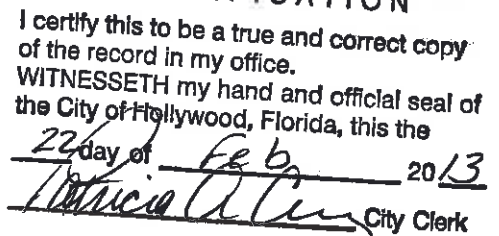 I certify this to be a true and correct copy
of the record in my office.
WITNESSETH my hand and official seal of
the City of Hollywood, Florida, this the
22 day of Feb 2013
Patricia A City Clerk